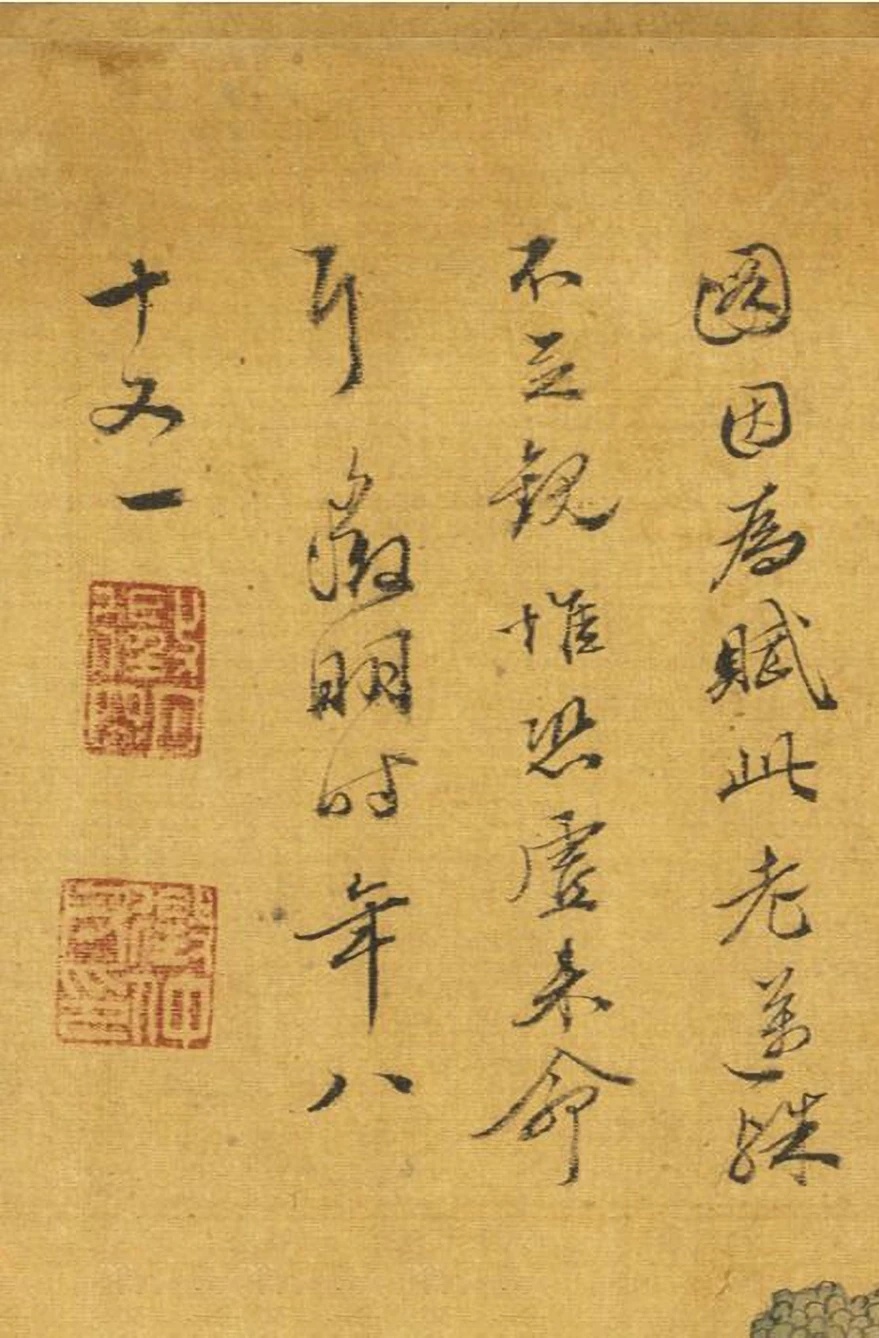 圖因為賦此老邁殊
不足觀惟恐虛來命
耳 徵明時年八
十又一